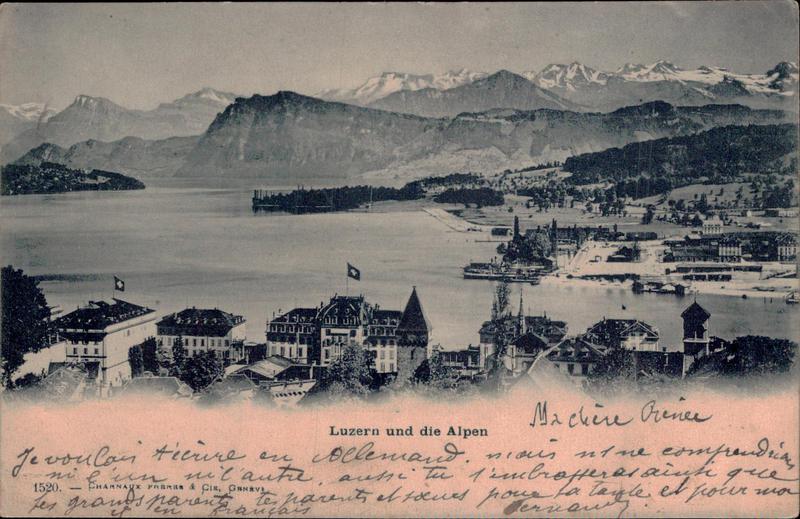 Luzern und die Alpen
Ma chère Irénée
Je voulais t'écrire en Allemand, mais ns ne comprendrions
ni l'un ni l'autre, aussi tu embrasseras ainsi que
1520. — CHARNAUX FRÈRES & CIE, GENÈVE
tes grands parents, tes parents et sœurs pour ta tante et pour moi
et en français
Fernand